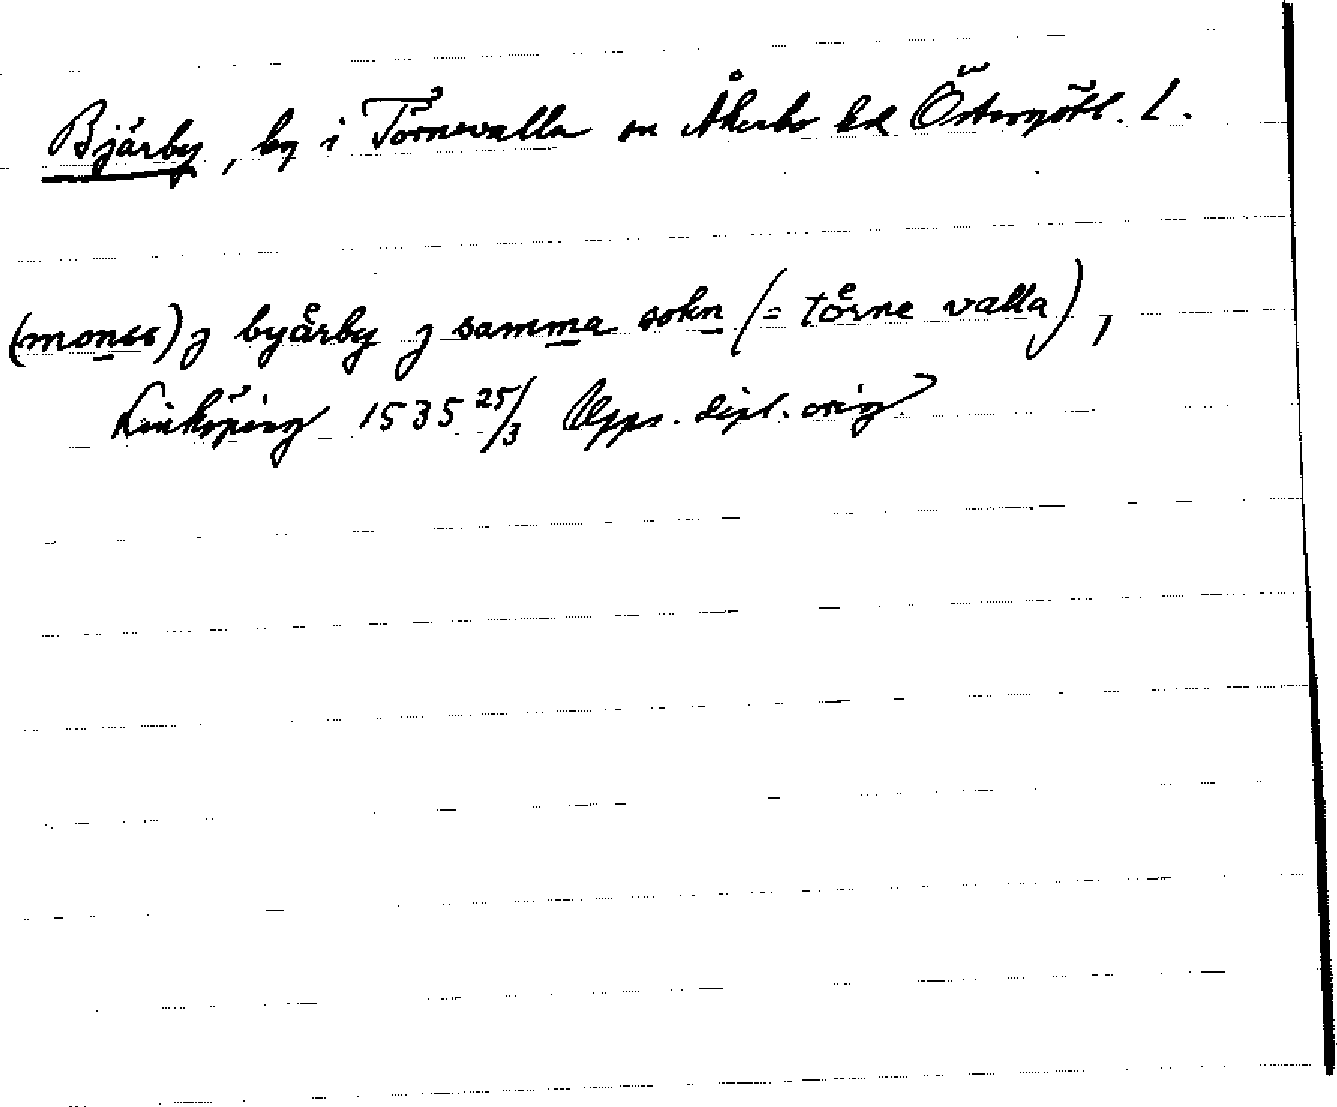 Bjärby, by i Törnevalla sn Åkerbo hd Östergötl. L.
(mones) j byårby j samma sokn (= törne valla),
Linköping 1535 25/3 Upps. dipl. orig